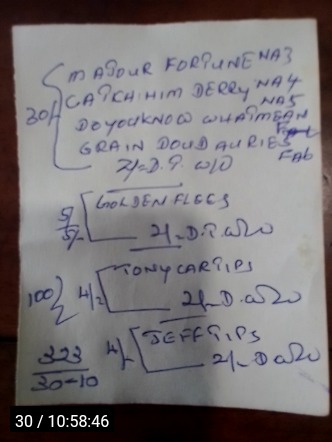 MAJOUR FORTUNE NA3
30/ CATCH HIM DERRY NA4
DOYOUKNOW WHATMEAN NA5
GRAIN DOUD AURIES FAB
2/- D.T. W/O
5/ GOLDEN FLEGS
5/- 2/- D.T. W/O
100 4/- TONY CARTIPS
2/- D. W/O
323 4/- JEFFTIPS
30-10 2/- D W/O
30 / 10:58:46